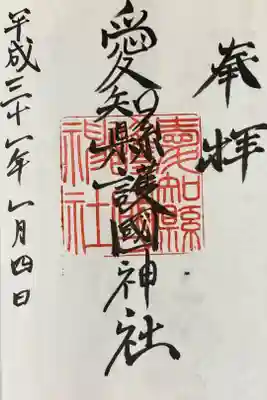 奉拝
愛知縣護國神社
愛知縣
神社
平成三十一年一月四日